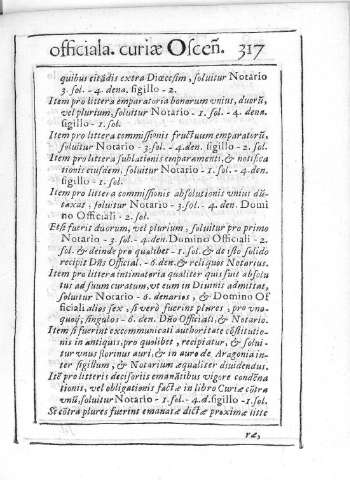 officiala. curiæ Oscen̄. 317
quibus citādis extra Diœcesim, soluitur Notario
3. sol. - 4. dena. sigillo - 2.
Item pro littera emparatoria bonorum vnius, duorū,
vel plurium, soluitur Notario - 1. sol. - 4. dena.
sigillo - 1. sol.
Item pro littera commissionis fructuum emparatorū,
soluitur Notario - 3. sol. - 4. den. sigillo - 2. sol.
Item pro littera sublationis emparamenti, & notifica
tionis eiusdem, soluitur Notario - 1. sol. - 4. den.
sigillo - 1. sol.
Item pro littera commissionis absolutionis vnius dū-
taxat, soluitur Notario - 3. sol. - 4. den. Domi
no Officiali - 2. sol.
Et si fuerit duorum, vel plurium, soluitur pro primo
Notario - 3. sol. - 4. den. Domino Officiali - 2.
sol. & deinde pro qualibet - 1. sol. & de isto solido
recipit Dn̄s Official. - 6. den. & reliquos Notarius.
Item pro littera intimatoria qualiter quis fuit absolu
tus ad suum curatum, vt eum in Diuinis admittat,
soluitur Notario - 6. denarios, & Domino Of
ficiali alios sex, si verò fuerint plures, pro vna-
quoq; singulos - 6. den. Dn̄o Officiali, & Notario.
Item si fuerint excommunicati authoritate cōstitutio-
nis in antiquis, pro quolibet, recipiatur, & solui-
tur vnus florinus auri, & in auro de Aragonia in-
ter sigillum, & Notarium æqualiter diuidendus.
Itē pro litteris decisoriis emanātibus vigore condēna
tionis, vel obligationis factæ in libro Curiæ cōtra
vnū, soluitur Notario - 1. sol. - 4. d. sigillo - 1. sol.
Se cōtra plures fuerint emanatæ dictæ proximæ litte
ræ,